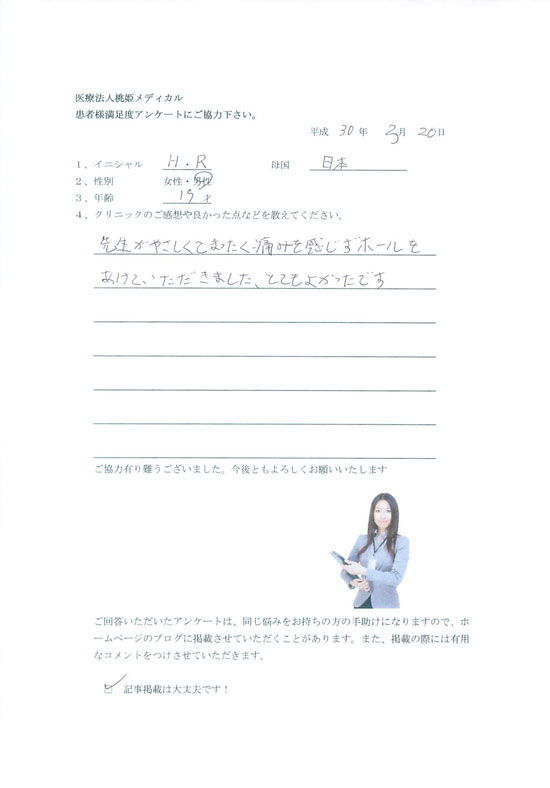 医療法人桃姫メディカル
患者様満足度アンケートにご協力下さい。
平成 30 年 3月 20日
1、イニシャル H.R 母国 日本
2、性別 女性・男性
3、年齢 19才
4、クリニックのご感想や良かった点などを教えてください。
先生がやさしくてまったく痛みを感じずホールを
あけていただきました、とてもよかったです
ご協力有り難うございました。今後ともよろしくお願いいたします
ご回答いただいたアンケートは、同じ悩みをお持ちの方の手助けになりますので、ホ
ームページのブログに掲載させていただくことがあります。また、掲載の際には有用
なコメントをつけさせていただきます。
記事掲載は大丈夫です！